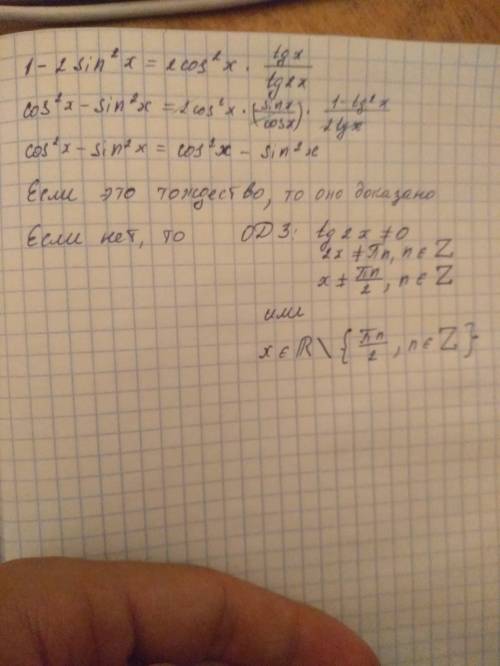 1 - 2 sin²x = 2cos²x · tgx/tg2x
cos²x - sin²x = 2cos²x · (sinx/cosx) · 1-tg²x/2tgx
cos²x - sin²x = cos²x - sin²x
Если это тождество, то оно доказано
Если нет, то ОДЗ: tg2x ≠ 0
2x ≠ πn, n ∈ ℤ
x ≠ πn/2, n ∈ ℤ
или
x ∈ ℝ \ {πn/2, n ∈ ℤ}